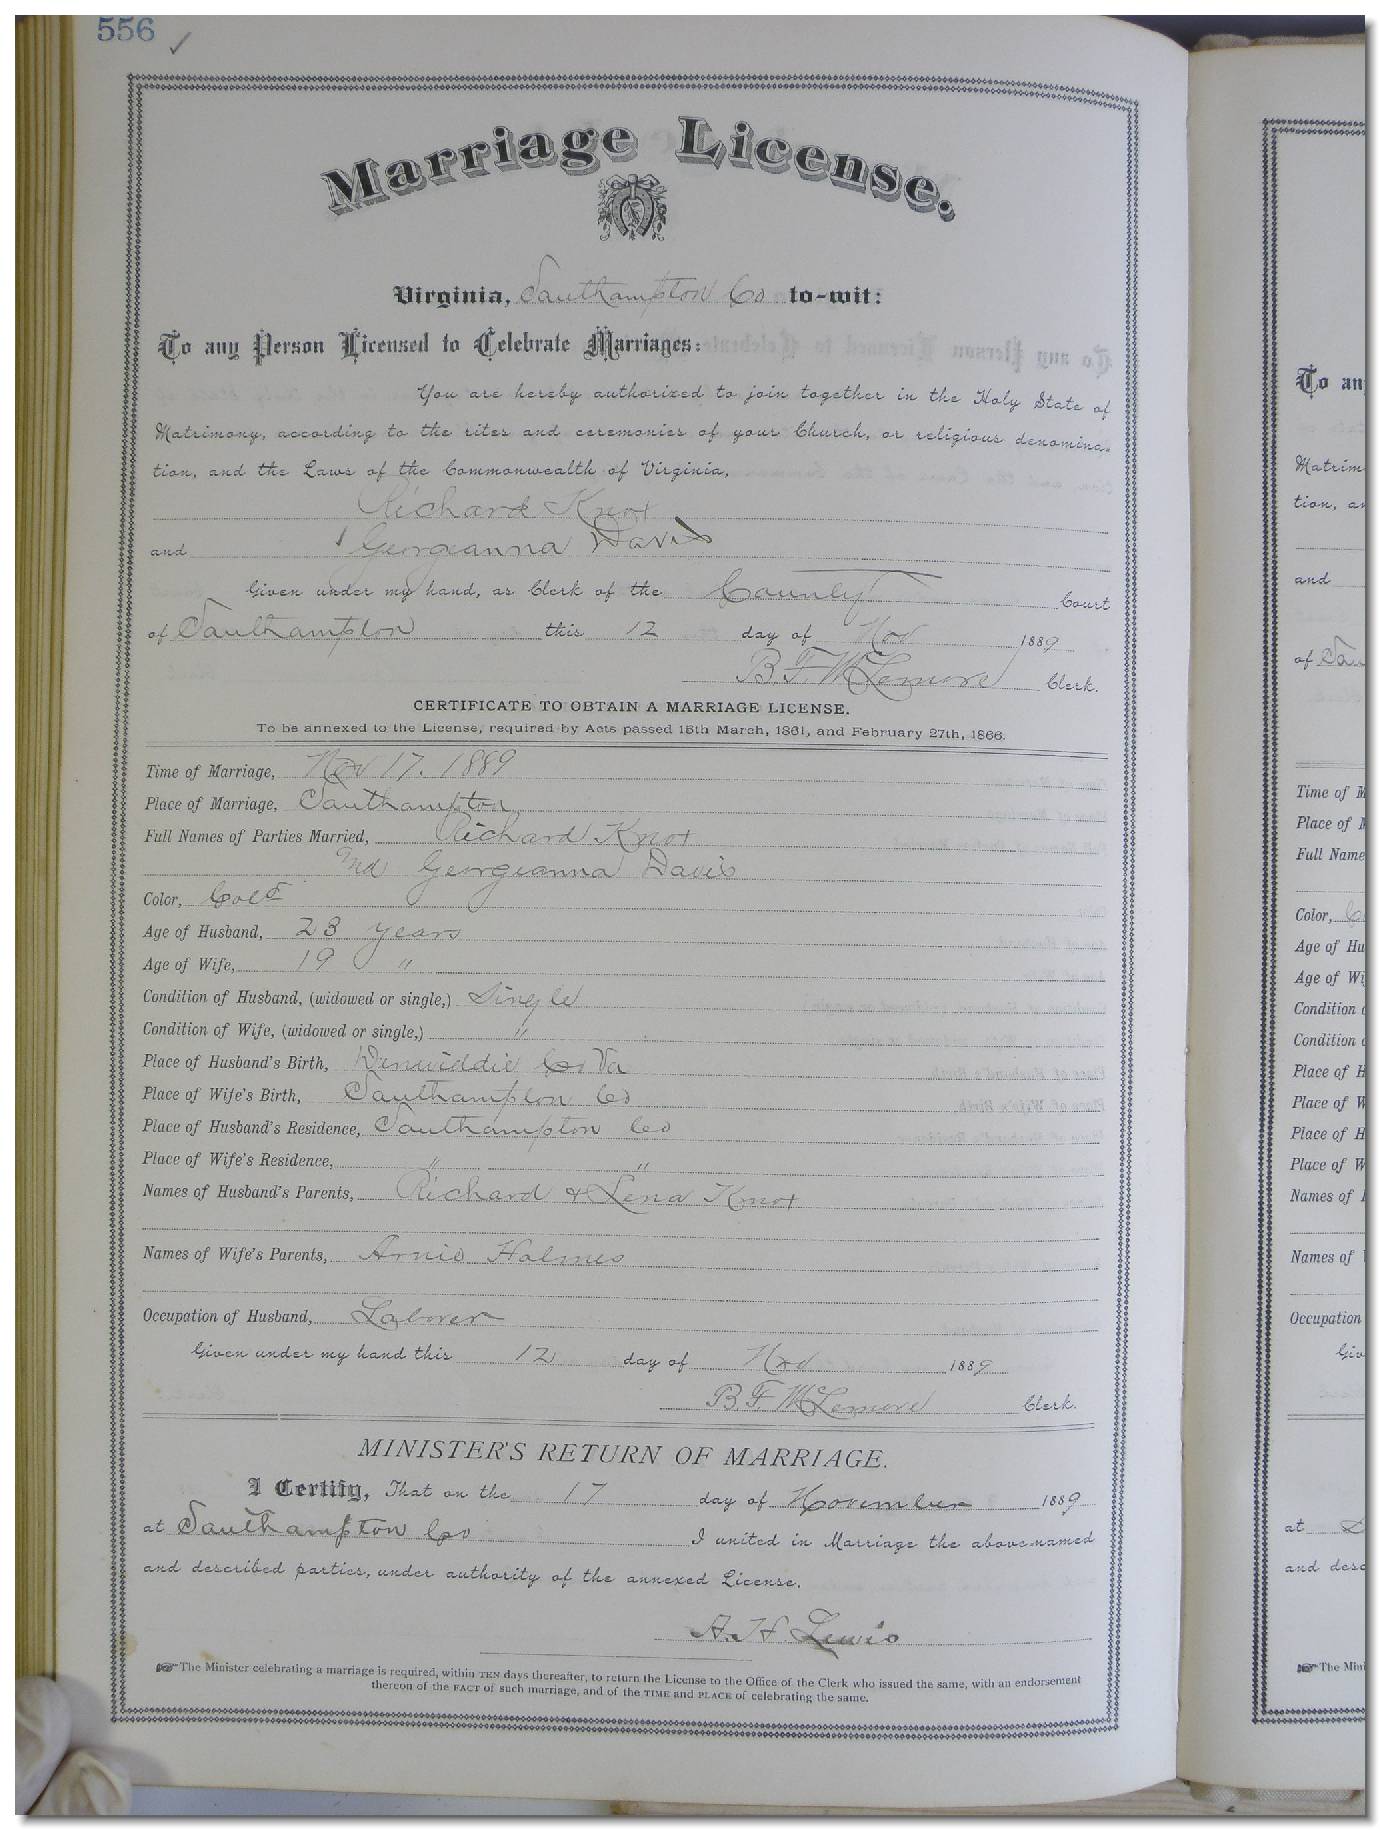 556 ✓
Marriage License.
Virginia, Southampton Co to-wit:
To any Person Licensed to Celebrate Marriages:
You are hereby authorized to join together in the Holy State of
Matrimony, according to the rites and ceremonies of your Church, or religious denomina-
tion, and the Laws of the Commonwealth of Virginia,
Richard Knox
and Georgeanna Davis
Given under my hand, as Clerk of the County Court
of Southampton this 12 day of Nov 1889
B. F. McLemore Clerk.
CERTIFICATE TO OBTAIN A MARRIAGE LICENSE.
To be annexed to the License, required by Acts passed 15th March, 1861, and February 27th, 1866.
Time of Marriage, Nov 17. 1889
Place of Marriage, Southampton
Full Names of Parties Married, Richard Knox
and Georgeanna Davis
Color, Cold
Age of Husband, 23 years
Age of Wife, 19 "
Condition of Husband, (widowed or single,) Single
Condition of Wife, (widowed or single,) "
Place of Husband's Birth, Dinwiddie Co Va
Place of Wife's Birth, Southampton Co
Place of Husband's Residence, Southampton Co
Place of Wife's Residence, " "
Names of Husband's Parents, Richard & Lena Knox
Names of Wife's Parents, Arnie Holmes
Occupation of Husband, Laborer
Given under my hand this 12 day of Nov 1889
B. F. McLemore Clerk.
MINISTER'S RETURN OF MARRIAGE.
I Certify, That on the 17 day of November 1889
at Southampton Co I united in Marriage the above-named
and described parties, under authority of the annexed License.
A. H. Lewis
☞The Minister celebrating a marriage is required, within TEN days thereafter, to return the License to the Office of the Clerk who issued the same, with an endorsement
thereon of the FACT of such marriage, and of the TIME and PLACE of celebrating the same.
To an
Matrim
tion, an
and
of Sou
Time of M
Place of M
Full Name
Color, C
Age of Hu
Age of Wi
Condition
Condition
Place of H
Place of W
Place of H
Place of W
Names of
Names of
Occupation
Giv
at
and desc
☞The Mini